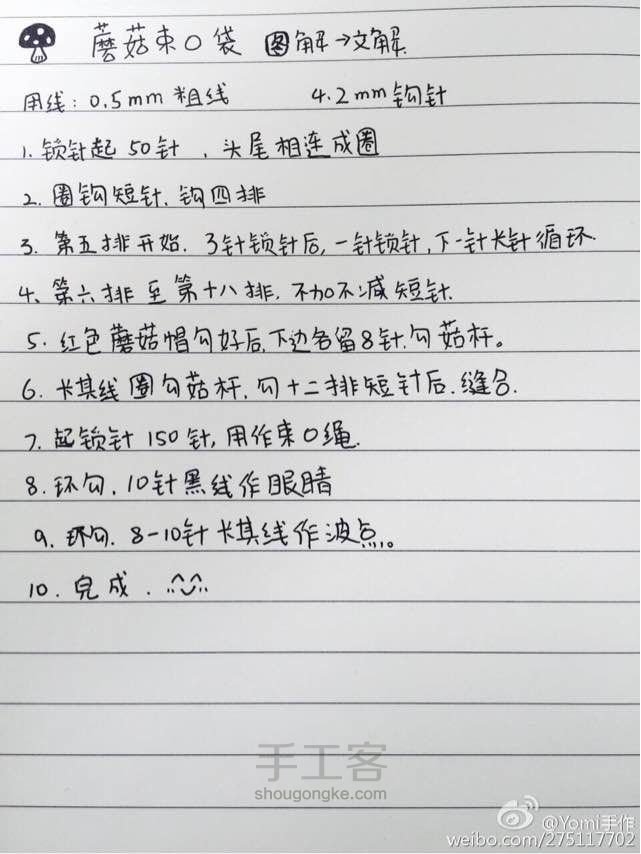 蘑菇束口袋 图解→文解
用线：0.5mm 粗线 4.2mm 钩针
1. 锁针起 50针，头尾相连成圈
2. 圈钩短针，钩四排
3. 第五排开始，3针锁针后，一针锁针，下一针长针循环
4、第六排至第十八排，不加不减短针
5. 红色蘑菇帽勾好后，下边各留8针，勾菇杆。
6. 卡其线圈勾菇杆，勾十二排短针后，缝合.
7. 起锁针 150针，用作束口绳.
8. 环勾，10针黑线作眼睛
9. 环勾. 8-10针卡其线作波点。
10. 完成. ^^
手工客
shougongke.com
@Yomi手作
weibo.com/275117702